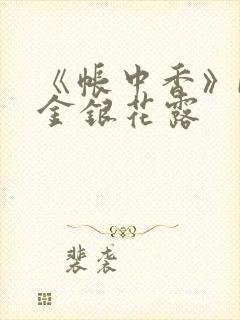 《帐中香》
金银花露
裴袭